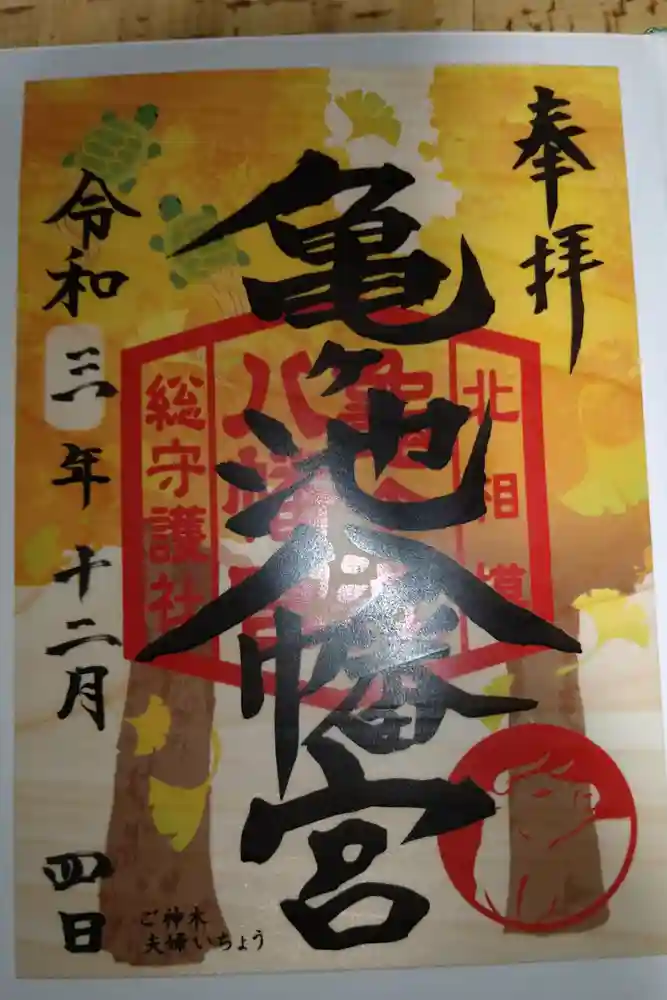 奉拝
北相模
亀ヶ池八幡宮
総守護社
令和三年十二月四日
ご神木
夫婦いちょう